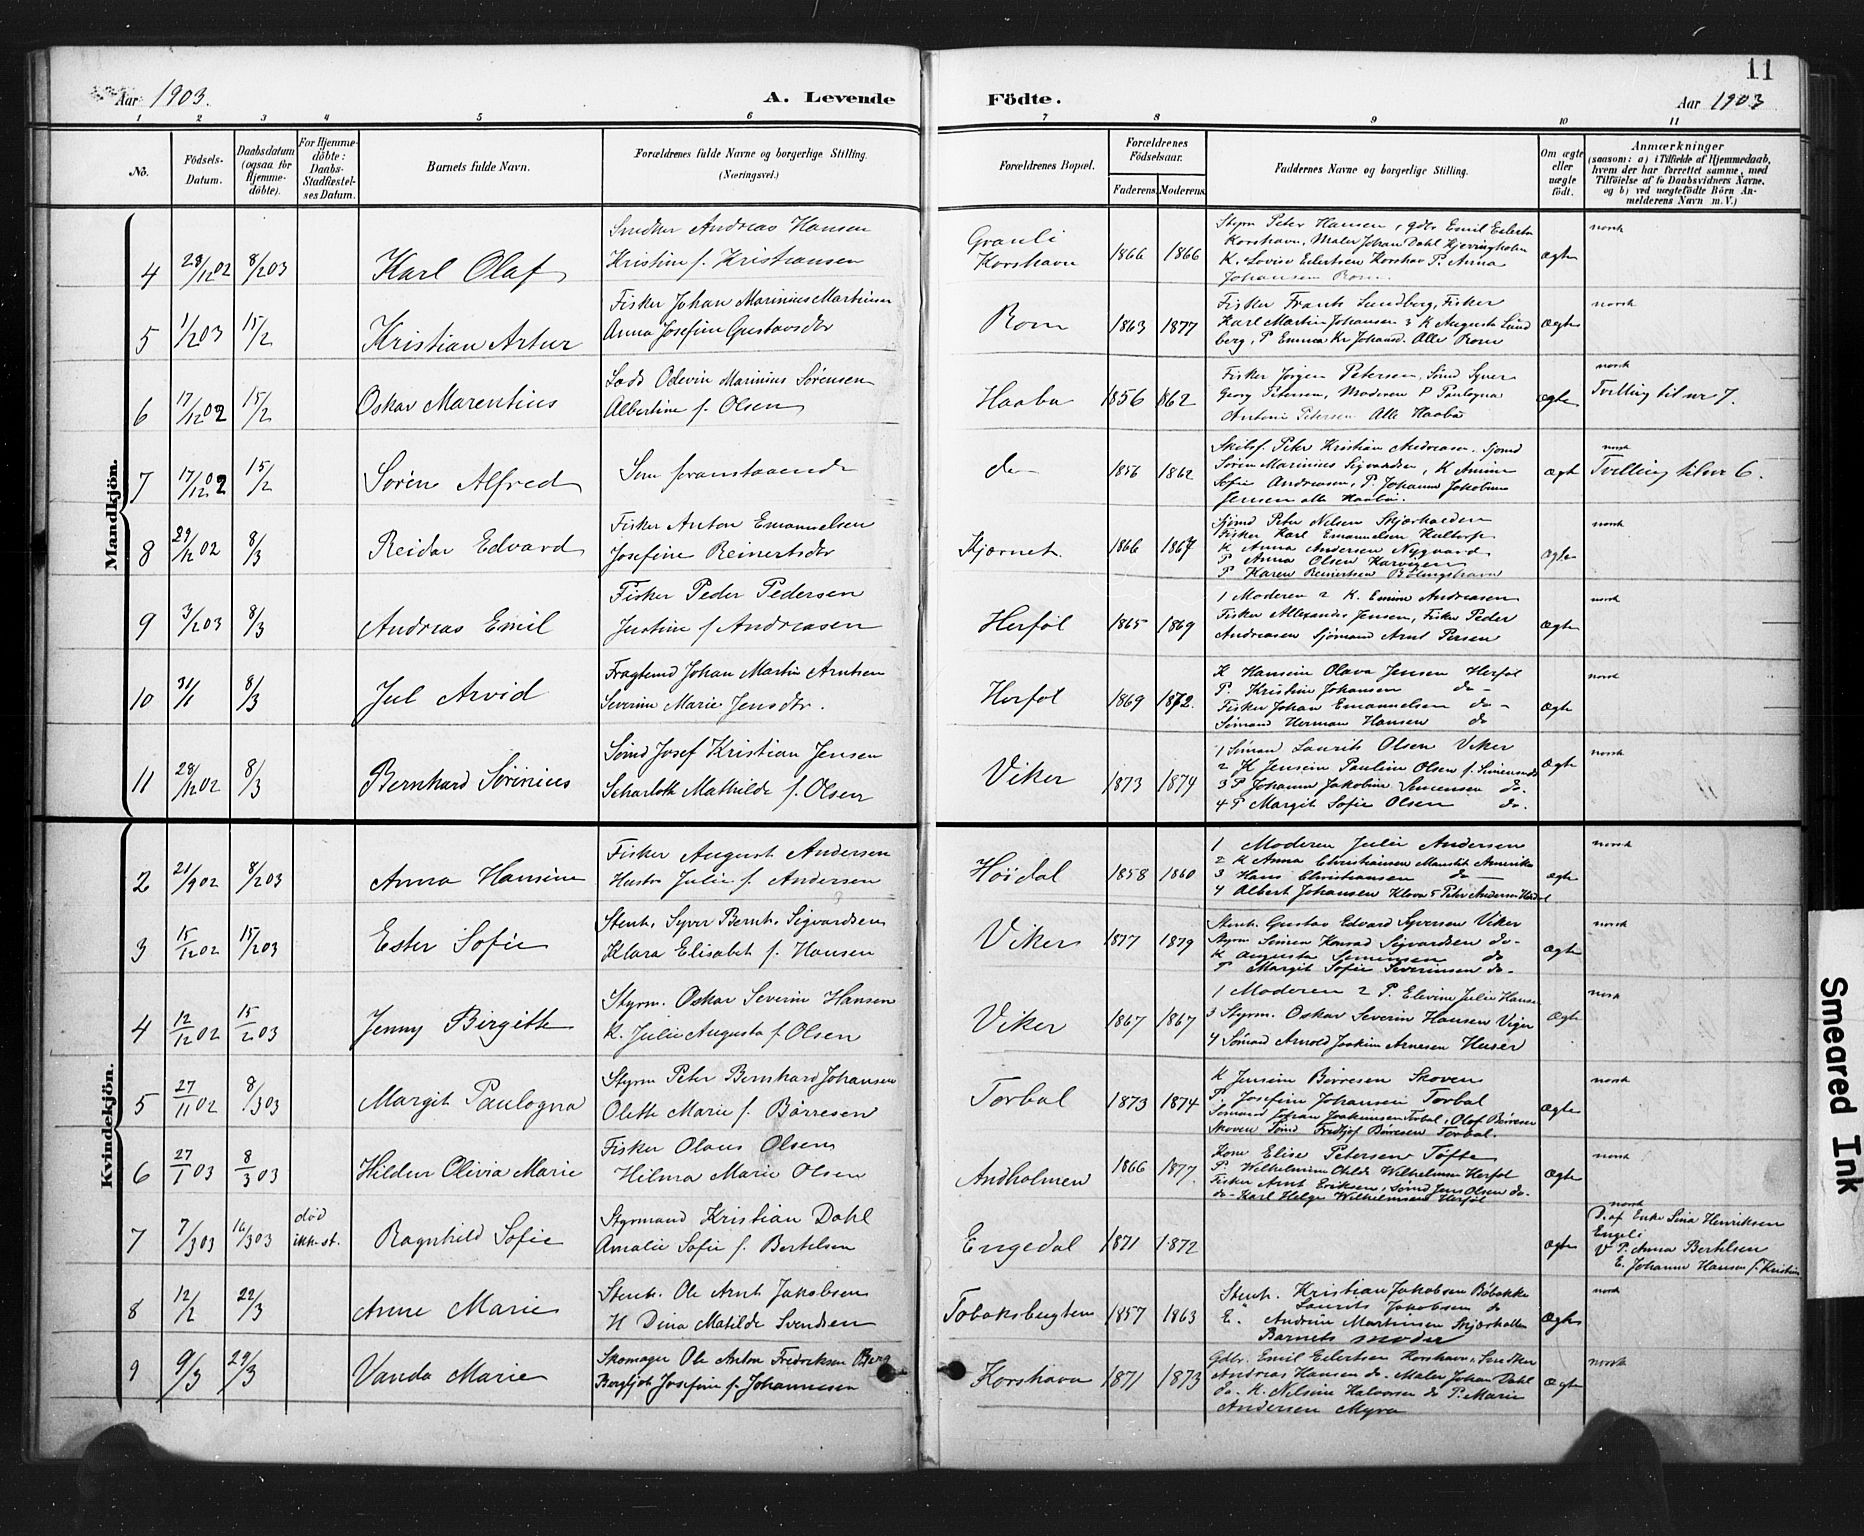 11
Aar 1903.
A. Levende
Födte.
Aar 1903
1 2 3 4 5 6 7 8 9 10 11
No.
Födsels-Datum.
Daabsdatum (ogsaa for Hjemmedöbte).
For Hjemmedöbte: Daabs-Stadfæstelses Datum.
Barnets fulde Navn.
Forældrenes fulde Navne og borgerlige Stilling.
(Næringsvei.)
Forældrenes Bopæl.
Forældrenes Födselsaar.
Faderens. Moderens.
Faddernes Navne og borgerlige Stilling.
Om ægte eller uægte födt.
Anmærkninger
(saasom: a) i Tilfælde af Hjemmedaab, hvem der har forrettet samme, med Tilföielse af to Daabsvidners Navne, og b) ved uægtefödte Börn Anmelderens Navn m. V.)
Mandkjön.
4 28/12 02 8/2 03 Karl Olaf
Smedker Andreas Hansen
Kristine f. Kristiansen
Grauli
Korshavn
1866 1866
Styrm Peter Hansen, gdbr Emil Eilertsn
Korshavn, Maler Johan Dahl Kjerringholm
K. Lovise Eilertsen Korshav P. Anna
Johansen Rom.
ægte
norsk
5 1/2 03 15/2 Kristian Artur
Fisker Johan Marinius Martinsen
Anna Josefine Gustavsdtr
Rom
1863 1877
Fisker Frants Lundberg, Fisker
Karl Martin Johansen 3 K Augusta Lund
berg, P Emma Kr Johansd. Alle Rom
ægte
norsk
6 17/12 02 15/2 Oskar Marentius
Lods Odevin Marinius Sørensen
Albertine f. Olsen
Haabu
1856 1862
Fisker Jørgen Petersen, Sømd Syver
Georg Petersen, Moderen P Paulogna
Antonie Petersen Alle Haabu
ægte
norsk
Tvilling til nr 7.
7 17/12 02 15/2 Søren Alfred
Som foranstaaende
do
1856 1862
Skibsf. Peter Kristian Andreasen, Sjømd
Søren Marinius Sigvardsen, K Amine
Sofie Andreasen, P. Johanne Jakobine
Jensen alle Haabu.
ægte
norsk
Tvilling til nr 6.
8 29/12 02 8/3 Reidar Edvard
Fisker Anton Emanuelsen
Josefine Reinertsdtr
Kjærnet.
1866 1867
Sjømd Peter Nilsen Skjærhalden
Fisker Karl Emanuelsen Kultorp
K Anna Andersen Nygaard
P Anna Olsen Karvigen
P Karen Reinertsen Bølingshavn
ægte
norsk
9 3/2 03 8/3 Andreas Emil
Fisker Peder Pedersen
Justine f Andreasen
Herføl
1865 1869
1 Moderen 2 K. Emine Andreasen
Fisker Allexander Jensen, Fisker Peder
Andreasen Sjømand Arnt Persen
ægte
norsk
10 31/1 8/3 Jul Arvid
Fragtemd Johan Martin Arntsen
Severine Marie Jensdtr.
Herføl
1869 1872.
K Hansine Olava Jensen Herføl
P. Kristine Johansen do
Fisker Johan Emanuelsen do
Sømand Herman Hansen do
ægte
norsk
11 28/12 02 8/3 Bernhard Sørinius
Sømd Josef Kristian Jensen
Scharlotte Mathilde f. Olsen
Viker
1873 1874
1 Sømand Laurits Olsen Viker
2 K Jensine Pauline Olsen f.
3 P Johanne Jakobine Simensen do.
4 P Margit Sofie Olsen do.
ægte
norsk
Kvindekjön.
2 21/9 02 8/2 03 Anna Hansine
Fisker August Andersen
Hustru Julie f. Andersen
Høidal
1858 1860
1 Moderen Julie Andersen
2 K Anna Christiansen Amerika
3 Hans Christiansen do
4 Albert Johansen Kleva 5 Peter Andersen Høidal
ægte
norsk
3 15/12 02 15/2 03 Ester Sofie
Stenh. Syver Bernh. Sigvardsen
Klara Elisabet f. Hansen
Viker
1877 1879
Stenh. Gustav Edvard Syversen Viker
Styrm Simen Konrad Sigvardsen do
K Augusta Simensen do
P Margit Sofie Severinsen do
ægte
norsk
4 12/12 02 15/2 03 Jenny Birgitte
Styrm. Oskar Severin Hansen
K. Julie Augusta f. Olsen
Viker
1867 1867
1 Moderen 2 P. Elevine Julie Hansen
3 Styrm. Oskar Severin Hansen Viger
4 Sømand Arnold Joakim Arnesen Huser
ægte
norsk
5 27/11 02 8/3 03 Margit Paulogna
Styrm Peter Bernhard Johansen
Olette Marie f. Børresen
Torbal
1873 1874
K Jensine Børresen Skoven
P. Josefine Johansen Torbal
Sømand Johan Joakimsen Torbal, Olaf Børresen
Skoven Sømd Fridtjof Børresen Torbal.
ægte
norsk
6 27/1 03 8/3 03 Hildur Olivia Marie
Fisker Olaus Olsen
Hilma Marie Olsen
Andholmen
1866 1877
Kone Elise Petersen Tofte
P. Wilhelmine Othilde Wilhelmsen Herføl
Fisker Arnt Eriksen, Sømd Jens Olsen do.
do Karl Helge Wilhelmsen Herføl
ægte
norsk
7 7/3 03 16/3 03 død ikke st. Ragnhild Sofie
Styrmand Kristian Dahl
Amalie Sofie f. Bertelsen
Engedal
1871 1872
ægte
norsk
D. af Enke Sina Henriksen
Engeli
V P. Anna Bertelsen
E. Johanne Hansen f. Kristians
8 12/2 22/3 Anne Marie
Stenh. Ole Arnt Jakobsen
H Dina Matilde Svendsen
Tobaksbugten
1857 1863
Stenh. Kristian Jakobsen Bøbakke
" Laurits Jakobsen do
E. Andrine Martinsen Skjærhallen
Barnets moder
ægte
norsk
9 9/3 29/3 Vanda Marie
Skomager Ole Anton Fredriksen Berg
Bergljot Josefine f. Johannesen
Korshavn
1871 1873
Gdbr. Emil Eilertsen Korshavn, Smedker
Andreas Hansen do. Maler Johan Dahl
do. K. Nilsine Halvorsen do P. Marie
Andersen Myra
ægte
norsk
Smeared Ink